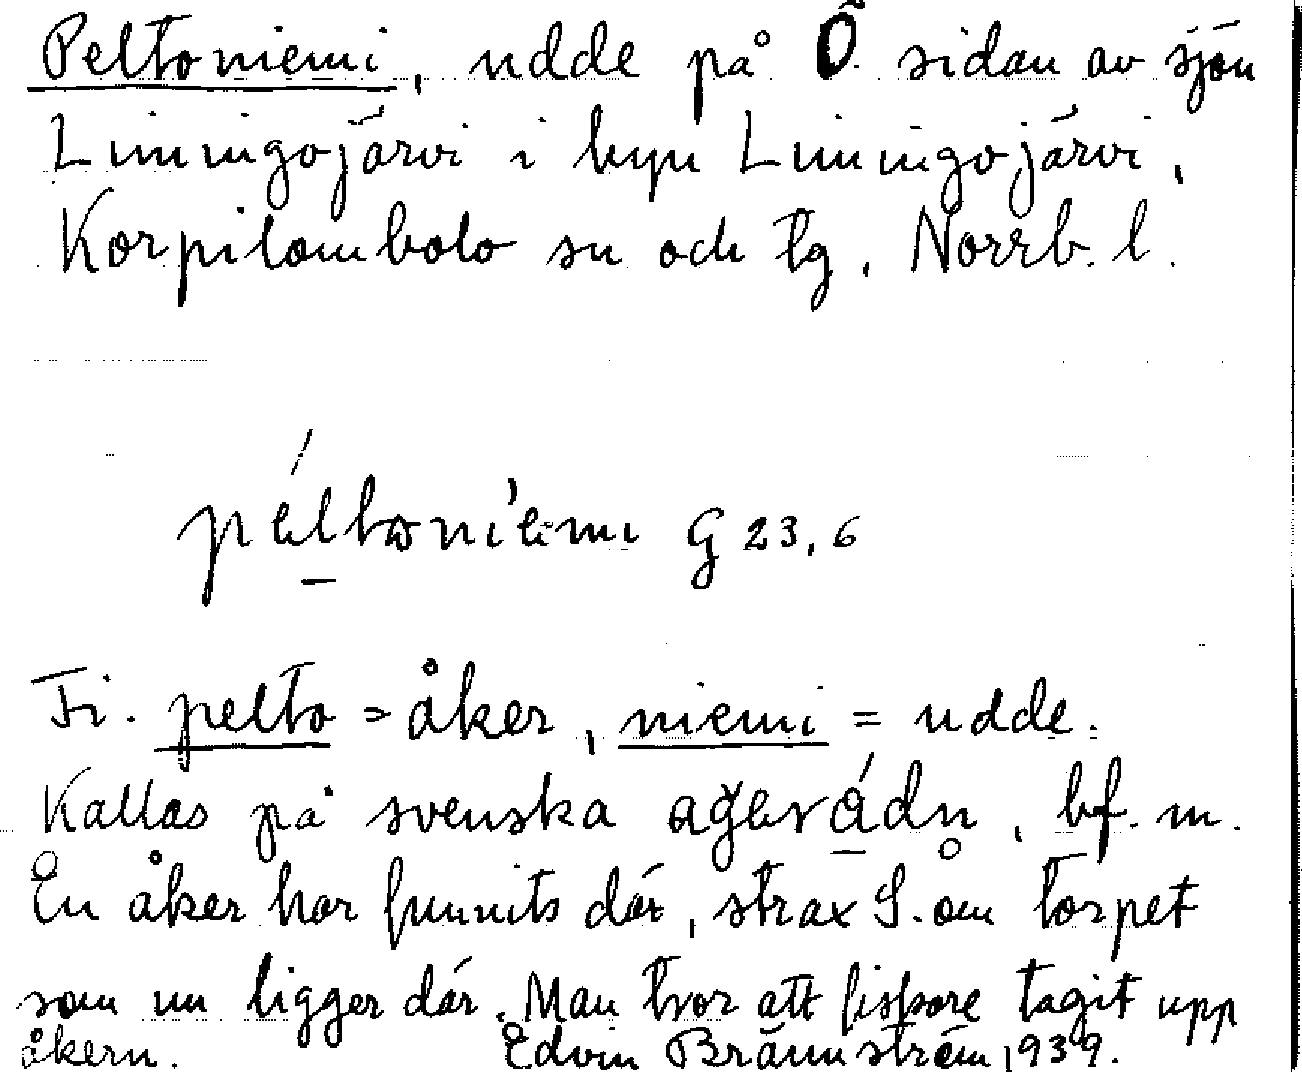 Peltoniemi, udde på Ö sidan av sjön
Liiningojärvi i byn Liiningojärvi,
Korpilombolo sn och tg, Norrb. l.
G 23,6
Fi. pelto = åker, niemi = udde.
Kallas på svenska bf. m.
En åker har funnits där, strax S. om torpet
som nu ligger där. Man tror att fiskare tagit upp
åkern. Edvin Brännström 1939.